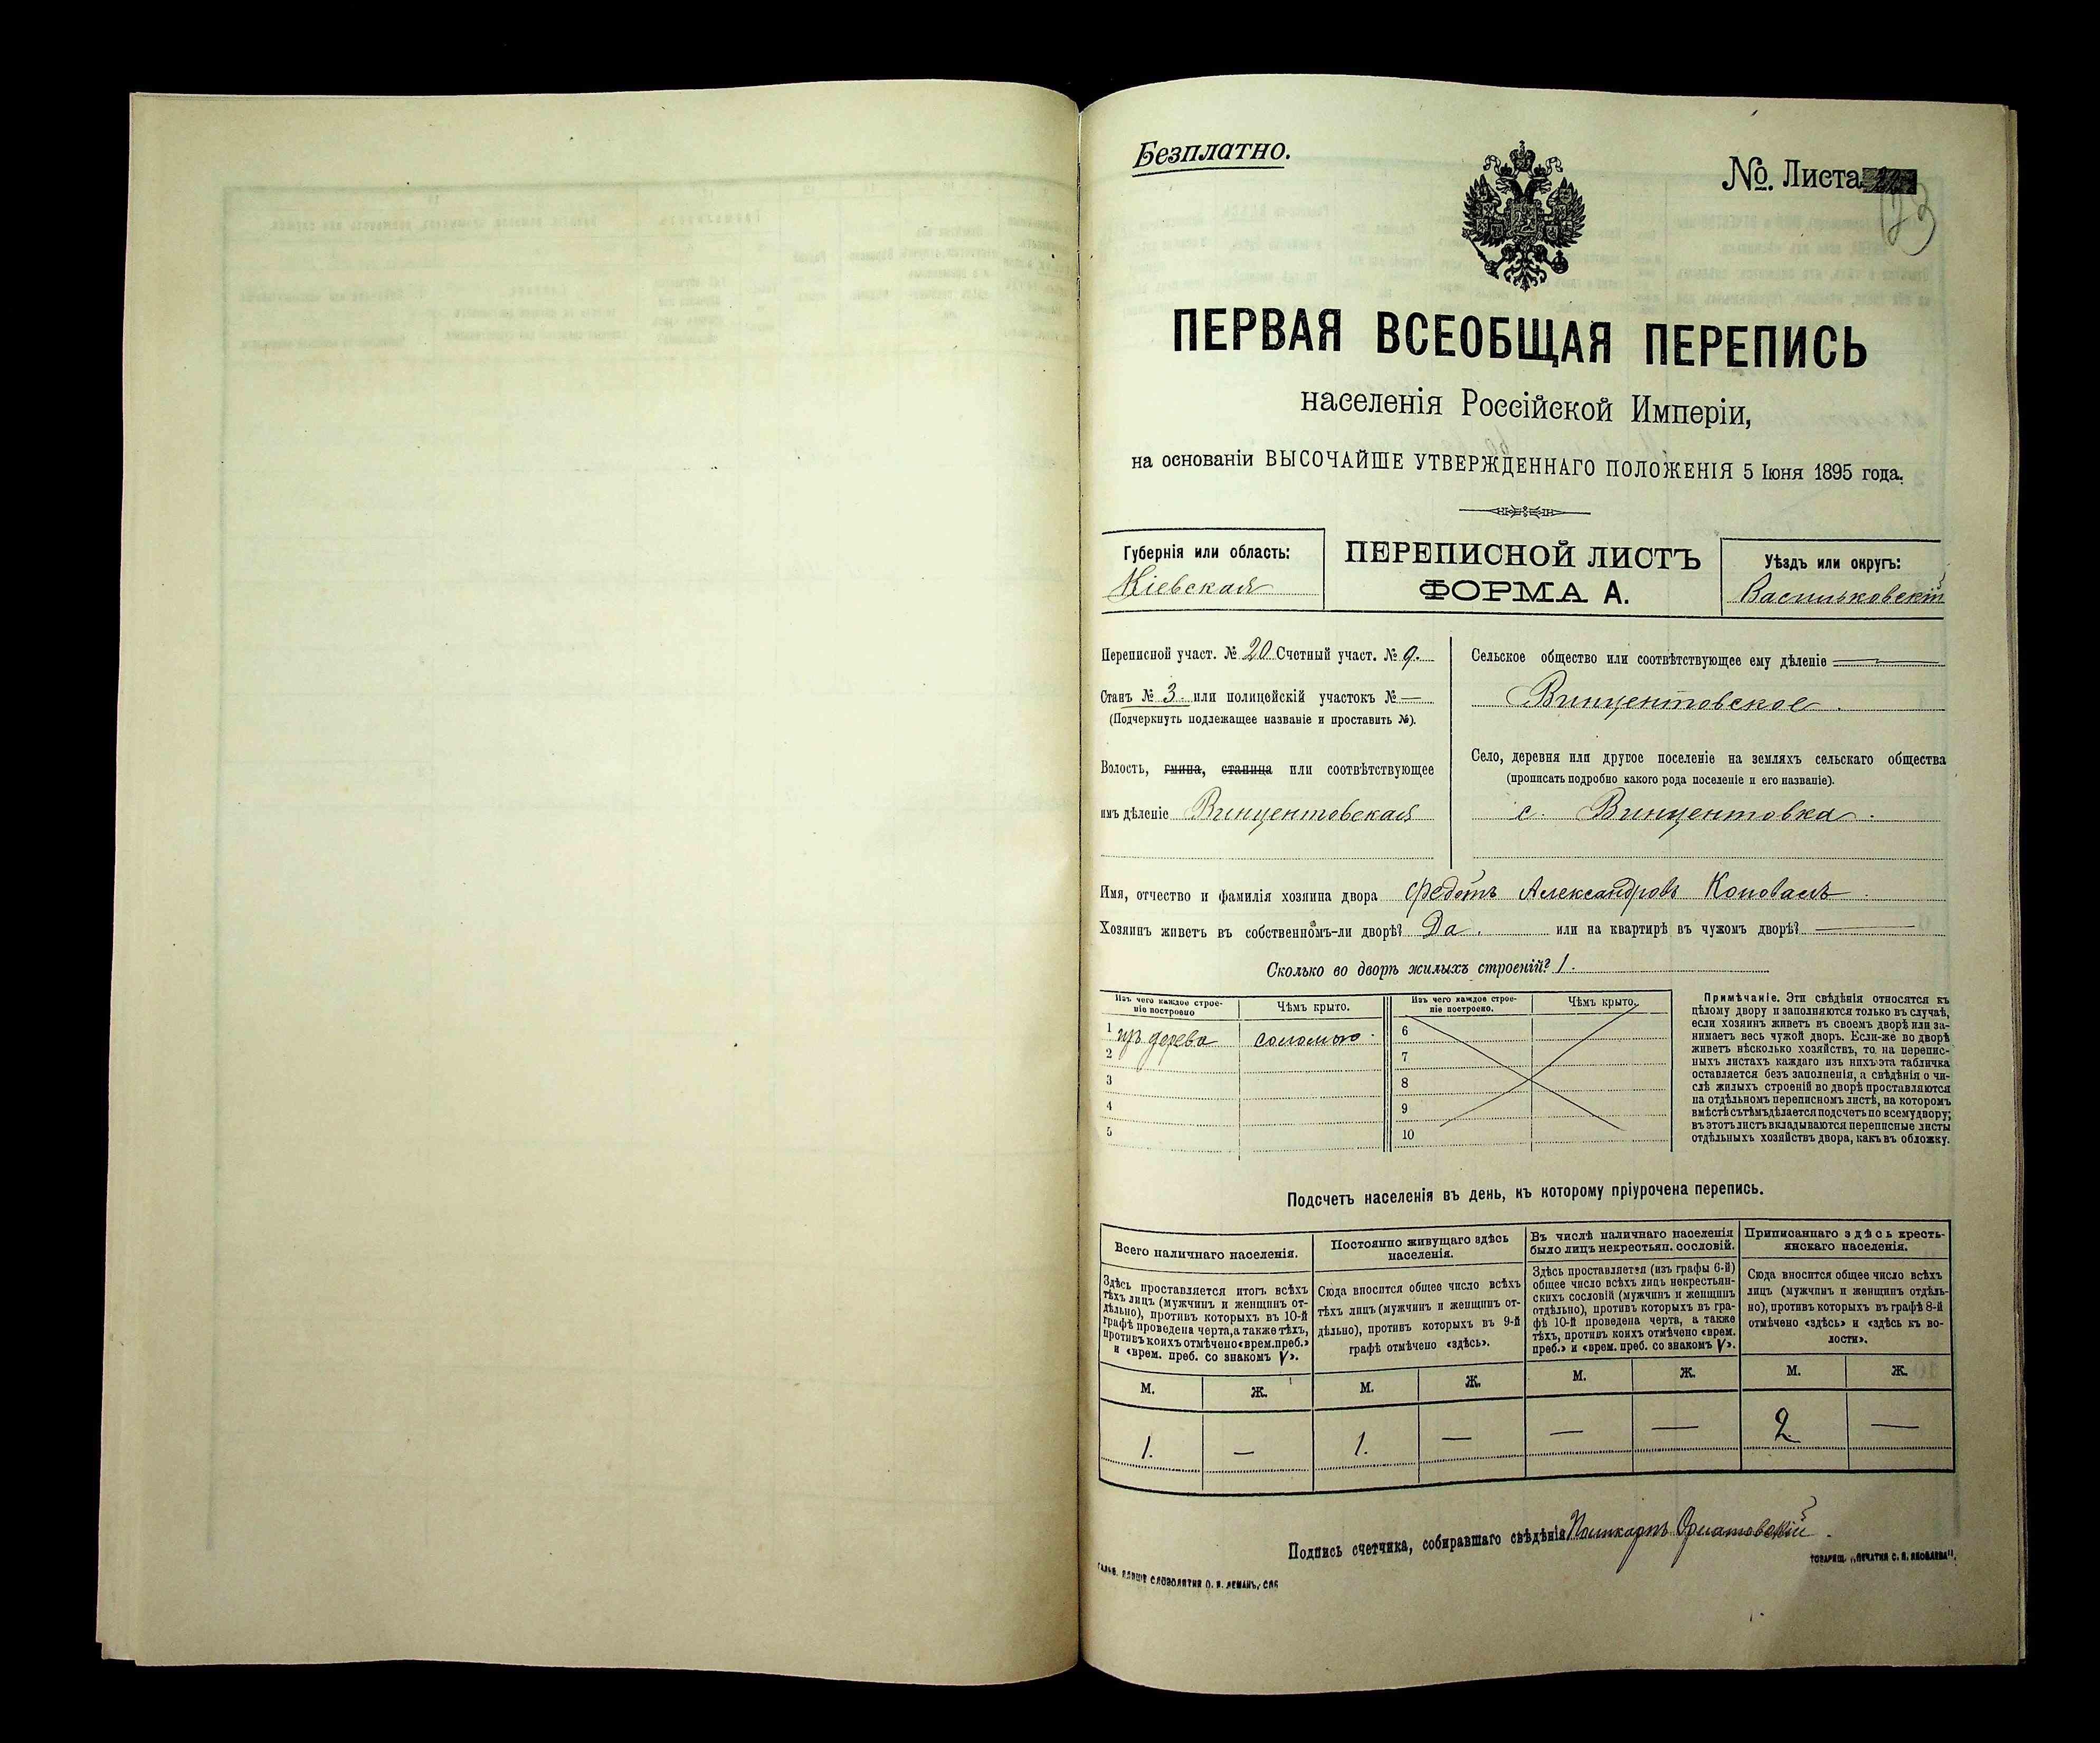 Безплатно.
№. Листа
23
ПЕРВАЯ ВСЕОБЩАЯ ПЕРЕПИСЬ
населенія Россійской Имперіи,
на основаніи ВЫСОЧАЙШЕ УТВЕРЖДЕННАГО ПОЛОЖЕНІЯ 5 Іюня 1895 года.
Губернія или область:
Кіевская
ПЕРЕПИСНОЙ ЛИСТЪ
ФОРМА А.
Уѣздъ или округъ:
Васильковскій
Переписной участ. № 20 Счетный участ. № 9.
Станъ № 3. или полицейскій участокъ № —
(Подчеркнуть подлежащее названіе и проставить №).
Волость, гмина, станица или соотвѣтствующее
имъ дѣленіе Винцентовская
Сельское общество или соотвѣтствующее ему дѣленіе —
Винцентовское.
Село, деревня или другое поселеніе на земляхъ сельскаго общества
(прописать подробно какого рода поселеніе и его названіе).
с. Винцентовка.
Имя, отчество и фамилія хозяина двора Федотъ Александровъ Коновалъ.
Хозяинъ живетъ въ собственномъ-ли дворѣ? Да. или на квартирѣ въ чужомъ дворѣ? —
Сколько во дворѣ жилыхъ строеній? 1.
Изъ чего каждое строе-
ніе построено
Чѣмъ крыто.
1 изъ дерева соломою.
2
3
4
5
Изъ чего каждое строе-
ніе построено.
Чѣмъ крыто.
6
7
8
9
10
Примѣчаніе. Эти свѣдѣнія относятся къ
цѣлому двору и заполняются только въ случаѣ,
если хозяинъ живетъ въ своемъ дворѣ или за-
нимаетъ весь чужой дворъ. Если-же во дворѣ
живетъ нѣсколько хозяйствъ, то на перепис-
ныхъ листахъ каждаго изъ нихъ эта табличка
оставляется безъ заполненія, а свѣдѣнія о чи-
слѣ жилыхъ строеній во дворѣ проставляются
на отдѣльномъ переписномъ листѣ, на которомъ
вмѣстѣ съ тѣмъ дѣлается подсчетъ по всему двору;
въ этотъ листъ вкладываются переписные листы
отдѣльныхъ хозяйствъ двора, какъ въ обложку.
Подсчетъ населенія въ день, къ которому пріурочена перепись.
Всего наличнаго населенія.
Здѣсь проставляется итогъ всѣхъ
тѣхъ лицъ (мужчинъ и женщинъ от-
дѣльно), противъ которыхъ въ 10-й
графѣ проведена черта, а также тѣхъ,
противъ коихъ отмѣчено «врем. преб.»
и «врем. преб. со знакомъ V».
М. Ж.
1. —
Постоянно живущаго здѣсь
населенія.
Сюда вносится общее число всѣхъ
тѣхъ лицъ (мужчинъ и женщинъ от-
дѣльно), противъ которыхъ въ 9-й
графѣ отмѣчено «здѣсь».
М. Ж.
1. —
Въ числѣ наличнаго населенія
было лицъ некрестьян. сословій.
Здѣсь проставляется (изъ графы 6-й)
общее число всѣхъ лицъ некрестьян-
скихъ сословій (мужчинъ и женщинъ
отдѣльно), противъ которыхъ въ гра-
фѣ 10-й проведена черта, а также
тѣхъ, противъ коихъ отмѣчено «врем.
преб.» и «врем. преб. со знакомъ V».
М. Ж.
— —
Приписаннаго здѣсь кресть-
янскаго населенія.
Сюда вносится общее число всѣхъ
лицъ (мужчинъ и женщинъ отдѣль-
но), противъ которыхъ въ графѣ 8-й
отмѣчено «здѣсь» и «здѣсь къ во-
лости».
М. Ж.
2 —
Подпись счетчика, собиравшаго свѣдѣнія Поликарпъ
ТОВАРИЩ. „ПЕЧАТНЯ С. П. ЯКОВЛЕВА".
СЛОВОЛИТНЯ О. И. ЛЕМАНЪ, СПБ